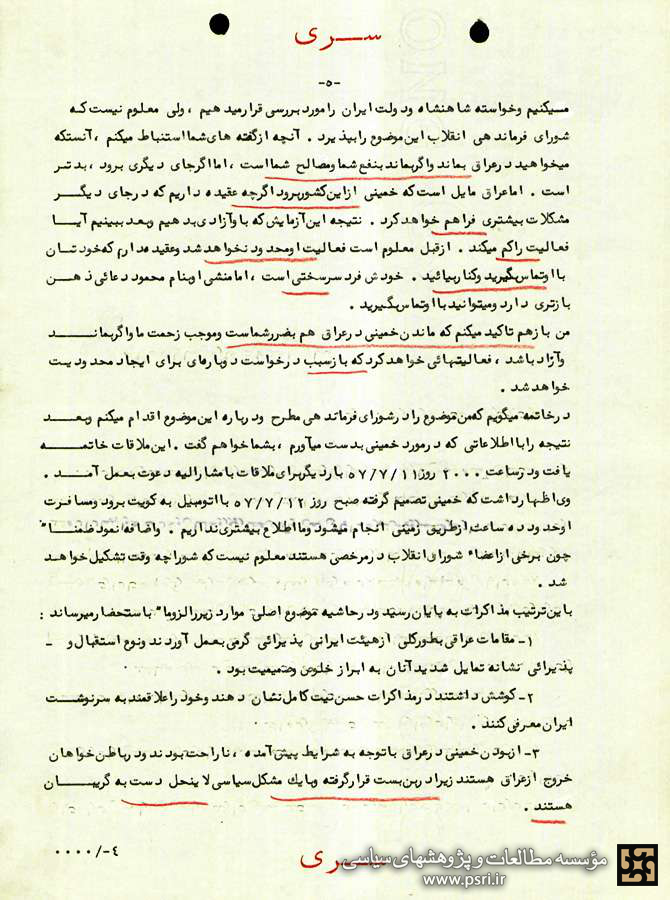 ســـری
-۵-
میکنیم وخواسته شاهنشاه ودولت ایران را موردبررسی قرارمیدهیم ، ولی معلوم نیست که
شورای فرماندهی انقلاب این موضوع رابپذیرد . آنچه ازگفته های شما استنباط میکنم ، آنستکه
میخواهید درعراق بماند واگربماند بنفع شما ومصالح شما است ، اما اگرجای دیگری برود ، بدتر
است . اما عراق مایل است که خمینی ازاین کشوربرود اگرچه عقیده داریم که درجای دیگر
مشکلات بیشتری فراهم خواهد کرد . نتیجه این آزمایش که باو آزادی بدهیم وبعد ببینیم آیا
فعالیت راکم میکند . ازقبل معلوم است فعالیت او محدود نخواهد شد وعقیده دارم که خودتان
با او تماس بگیرید وکناربیائید . خودش فرد سرسختی است ، اما منشی او بنام محمود دعائی ذهن
بازتری دارد ومیتوانید با او تماس بگیرید .
من بازهم تاکید میکنم که ماندن خمینی درعراق هم بضررشماست وموجب زحمت ما واگربمانـــد
وآزاد باشد ، فعالیتهائی خواهد کرد که بازسبب درخواست دوباره ای برای ایجاد محدودیت
خواهد شد .
درخاتمه میگویم که من موضوع را درشورای فرماندهی مطرح ودرباره این موضوع اقدام میکنم وبعـد
نتیجه را با اطلاعاتی که درمورد خمینی بدست میآورم ، بشما خواهم گفت . این ملاقات خاتمـه
یافت ودرساعت ۲۰۰۰ روز ۵۷/۷/۱۱ باردیگربرای ملاقات با مشارالیه دعوت بعمل آمـد .
وی اظهارداشت که خمینی تصمیم گرفته صبح روز ۵۷/۷/۱۲ با اتومبیل به کویت برود ومسافرت
اوحدود ده ساعت ازطریق زمینی انجام میشود وما اطلاع بیشتری نداریم . واضافه نمود ضمنـا"
چون برخی ازاعضاء شورای انقلاب درمرخصی هستند معلوم نیست که شورا چه وقت تشکیل خواهد
شد .
باین ترتیب مذاکرات به پایان رسید ودرحاشیه موضوع اصلی موارد زیررالزوما" باستحضارمیرساند :
۱- مقامات عراقی بطورکلی ازهیئت ایرانی پذیرائی گرمی بعمل آوردند ونوع استقبال و -
پذیرائی نشانه تمایل شدید آنان به ابراز خلوص وصمیمیت بود .
۲- کوشش داشتند درمذاکرات حسن نیت کامل نشان دهند وخود را علاقمند به سرنوشـت
ایران معرفی کنند .
۳- ازبودن خمینی درعراق باتوجه به شرایط پیش آمده ، ناراحت بودند ودرباطن خواهان
خروج ازعراق هستند زیرا دربن بست قرارگرفته وبا یک مشکل سیاسی لاینحل دست به گریبـان
هستند .
۰۰۰۰/-۴
ســـری
مؤسسه مطالعات و پژوهشهای سیاسی
www.psri.ir